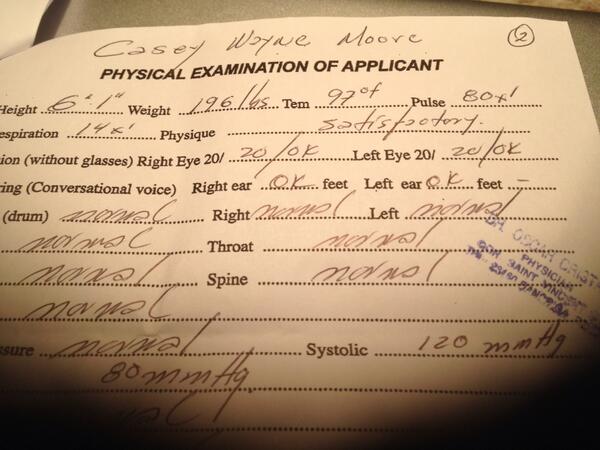 Casey Wayne Moore 2
PHYSICAL EXAMINATION OF APPLICANT
Height 6' 1" Weight 196 lbs Tem 97°f Pulse 80x'
espiration 14x' Physique satisfactory.
ion (without glasses) Right Eye 20/ 20/OK Left Eye 20/ 20/OK
ring (Conversational voice) Right ear OK feet Left ear OK feet –
(drum) normal Right normal Left normal
normal Throat normal
normal Spine normal
normal
ssure normal Systolic 120 mmHg
80 mmHg
DR. OSCAR
PHYSICIAN
SAINT